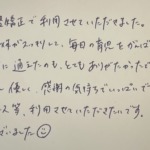 矯正で利用させていただきました。
スッキリし、毎日の育児をがんば
に通えたのも、とてもありがたかったで
優しい、感謝の気持ちでいっぱいで
ス等、利用させていただきたいです。
ございました